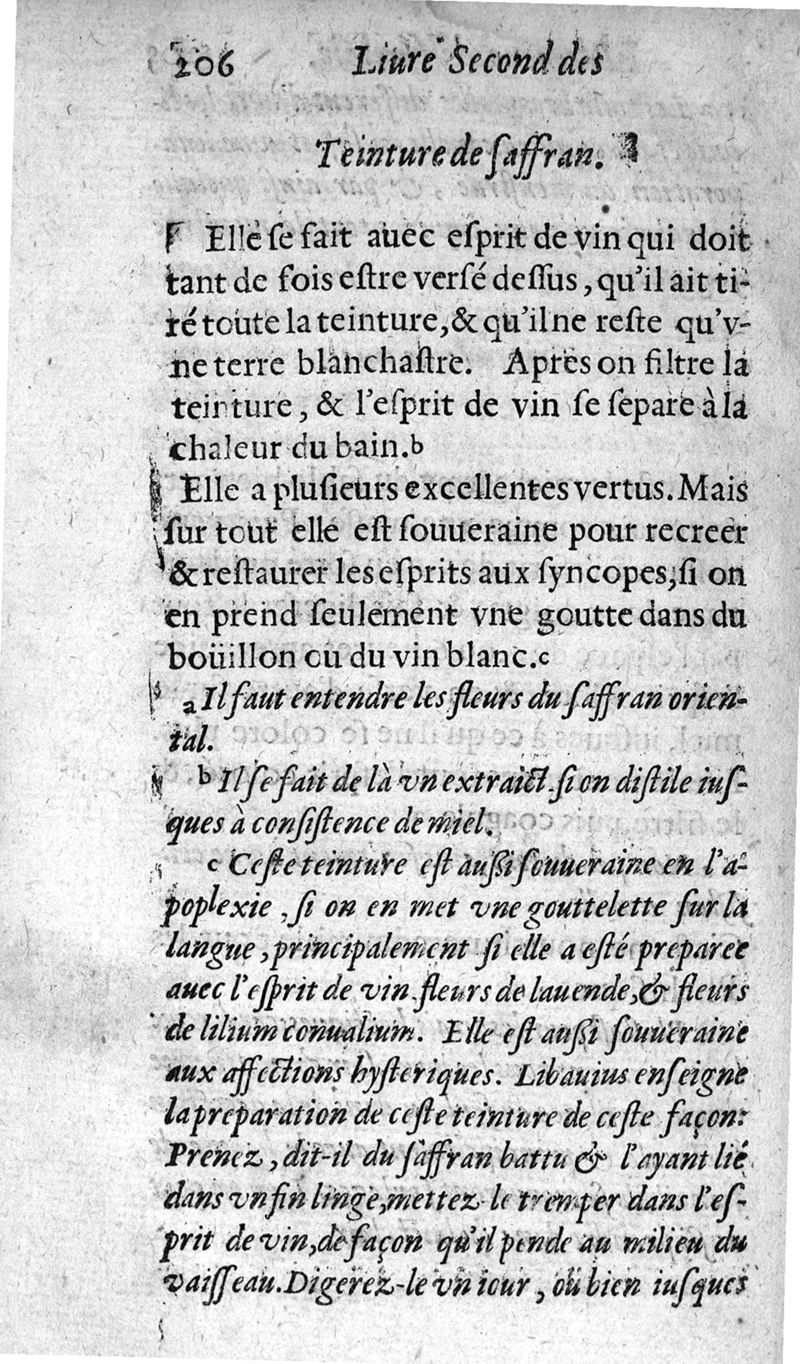 206 Liure Second des
Teinture de ſaffran.
Elle ſe fait auec eſprit de vin qui doit
tant de fois eſtre verſé deſſus, qu'il ait ti-
ré toute la teinture, & qu'il ne reſte qu'v-
ne terre blanchaſtre. Apres on filtre la
teinture, & l'eſprit de vin ſe ſepare à la
chaleur du bain.b
Elle a pluſieurs excellentes vertus. Mais
ſur tout elle eſt ſouueraine pour recreer
& reſtaurer les eſprits aux ſyncopes, ſi on
en prend ſeulement vne goutte dans du
boüillon ou du vin blanc.c
a Il faut entendre les fleurs du ſaffran orien-
tal.
b Il ſe fait de là vn extraict. ſi on diſtile iuſ-
ques à conſiſtence de miel.
c Ceſte teinture eſt auſſi ſouueraine en l'a-
poplexie, ſi on en met vne gouttelette ſur la
langue, principalement ſi elle a eſté preparee
auec l'eſprit de vin. fleurs de lauende, & fleurs
de lilium conualium. Elle eſt auſſi ſouueraine
aux affections hyſteriques. Libauius enſeigne
la preparation de ceſte teinture de ceſte façon:
Prenez, dit-il du ſaffran battu & l'ayant lié
dans vn fin linge, mettez le tremper dans l'eſ-
prit de vin, de façon qu'il pende au milieu du
vaiſſeau. Digerez-le vn iour, ou bien iuſques